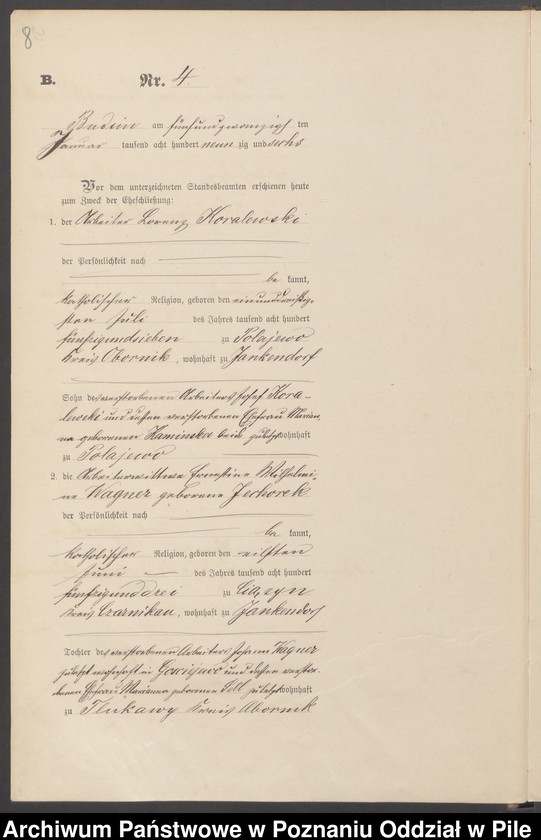 8
B. Nr. 4.
Budsin am fünfundzwanzigsten
Januar tausend acht hundert neunzig und sechs
Vor dem unterzeichneten Standesbeamten erschienen heute
zum Zweck der Eheschließung:
1. der Arbeiter Lorenz Koralewski
der Persönlichkeit nach
be kannt,
katholischer Religion, geboren den einunddreißig-
sten Juli des Jahres tausend acht hundert
fünfzigundsieben zu Polajewo
Kreis Obornik, wohnhaft zu Jankendorf
Sohn des verstorbenen Arbeiters Josef Kora-
lewski und dessen verstorbenen Ehefrau Marian-
na geborenen Kaminska beide zuletzt wohnhaft
zu Polajewo
2. die Arbeiterwittwe Ernestine Wilhelmi-
ne Wagner geborene
der Persönlichkeit nach
be kannt,
katholischer Religion, geboren den elften
Juni des Jahres tausend acht hundert
fünfzigunddrei zu
Kreis Czarnikau, wohnhaft zu Jankendorf
Tochter des verstorbenen Arbeiters Johann Wagner
zuletzt wohnhaft in und dessen verstor-
benen Ehefrau Marianna geborenen zuletzt wohnhaft
zu Tlukawy Kreis Obornik
Archiwum Państwowe w Poznaniu Oddział w Pile